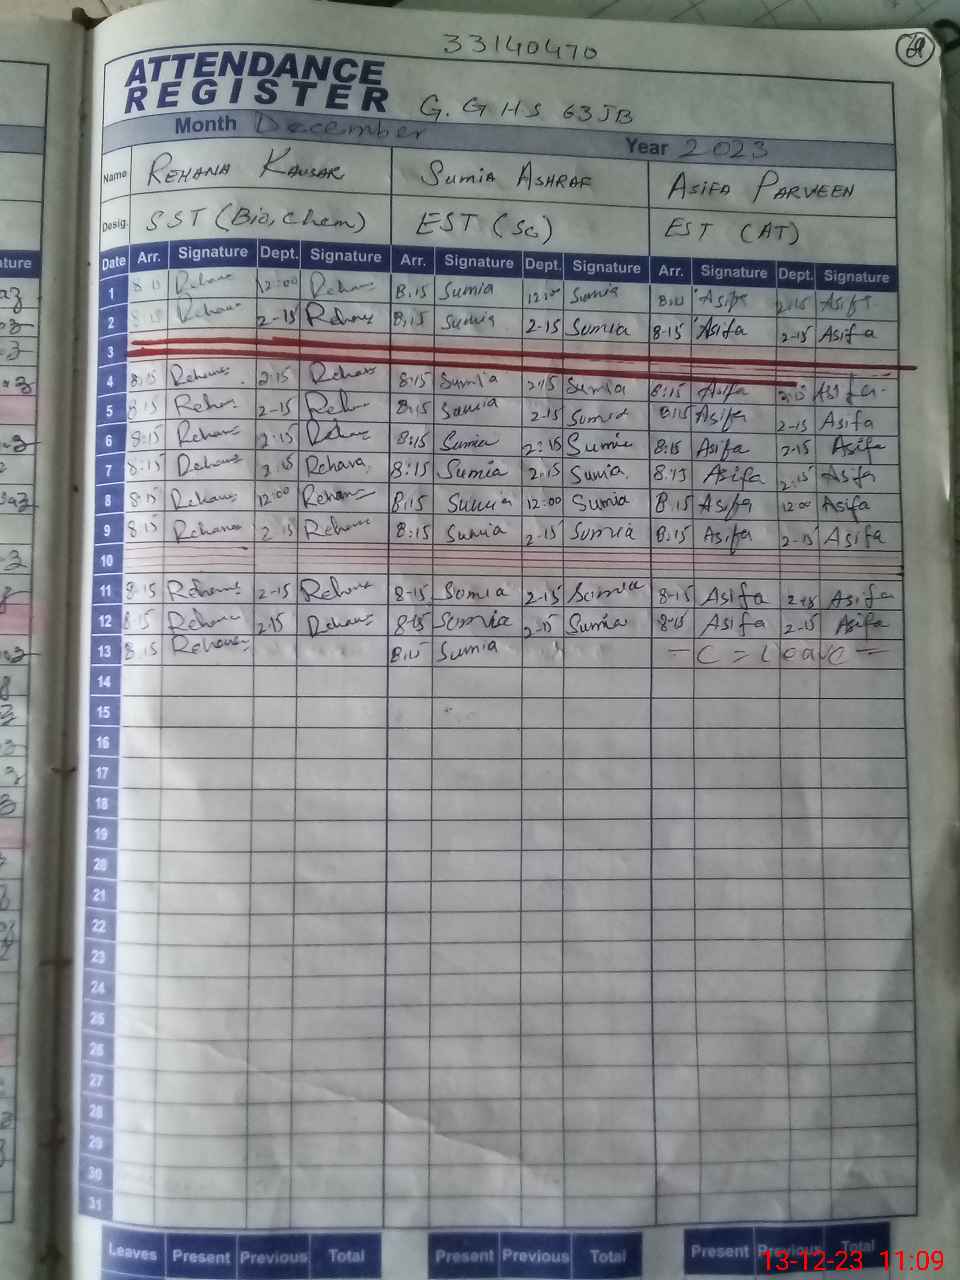 33140470
69
ATTENDANCE
REGISTER G.GHS 63JB
Month December Year 2023
Name REHANA KAUSAR SUMIA ASHRAF ASIFA PARVEEN
Desig. SST (Bio, Chem) EST (Sc) EST (AT)
Date Arr. Signature Dept. Signature Arr. Signature Dept. Signature Arr. Signature Dept. Signature
1 8:15 Rehana 12:00 Rehana 8:15 Sumia 12:00 Sumia 8:15 Asifa Asifa
2 8:15 Rehana 2-15 Rehana 8:15 Sumia 2-15 Sumia 8-15 Asifa 2-15 Asifa
3
4 8:15 Rehana 2:15 Rehana 8:15 Sumia 2:15 Sumia 8:15 Asifa 2:15 Asifa
5 8:15 Rehana 2-15 Rehana 8:15 Sumia 2-15 Sumia 8:15 Asifa 2-15 Asifa
6 8:15 Rehana 2:15 Rehana 8:15 Sumia 2:15 Sumia 8:15 Asifa 2-15 Asifa
7 8:15 Rehana 2:15 Rehana 8:15 Sumia 2:15 Sumia 8:15 Asifa 2:15 Asifa
8 8:15 Rehana 12:00 Rehana 8:15 Sumia 12:00 Sumia 8:15 Asifa 12:00 Asifa
9 8:15 Rehana 2:15 Rehana 8:15 Sumia 2-15 Sumia 8:15 Asifa 2-15 Asifa
10
11 8-15 Rehana 2-15 Rehana 8-15 Somia 2-15 Somia 8-15 Asifa 2-15 Asifa
12 8:15 Rehana 2:15 Rehana 8:15 Somia 2-15 Sumia 8:15 Asifa 2-15 Asifa
13 8:15 Rehana 8:15 Sumia - C = Leave =
14
15
16
17
18
19
20
21
22
23
24
25
26
27
28
29
30
31
Leaves Present Previous Total Present Previous Total Present Previous Total
13-12-23 11:09